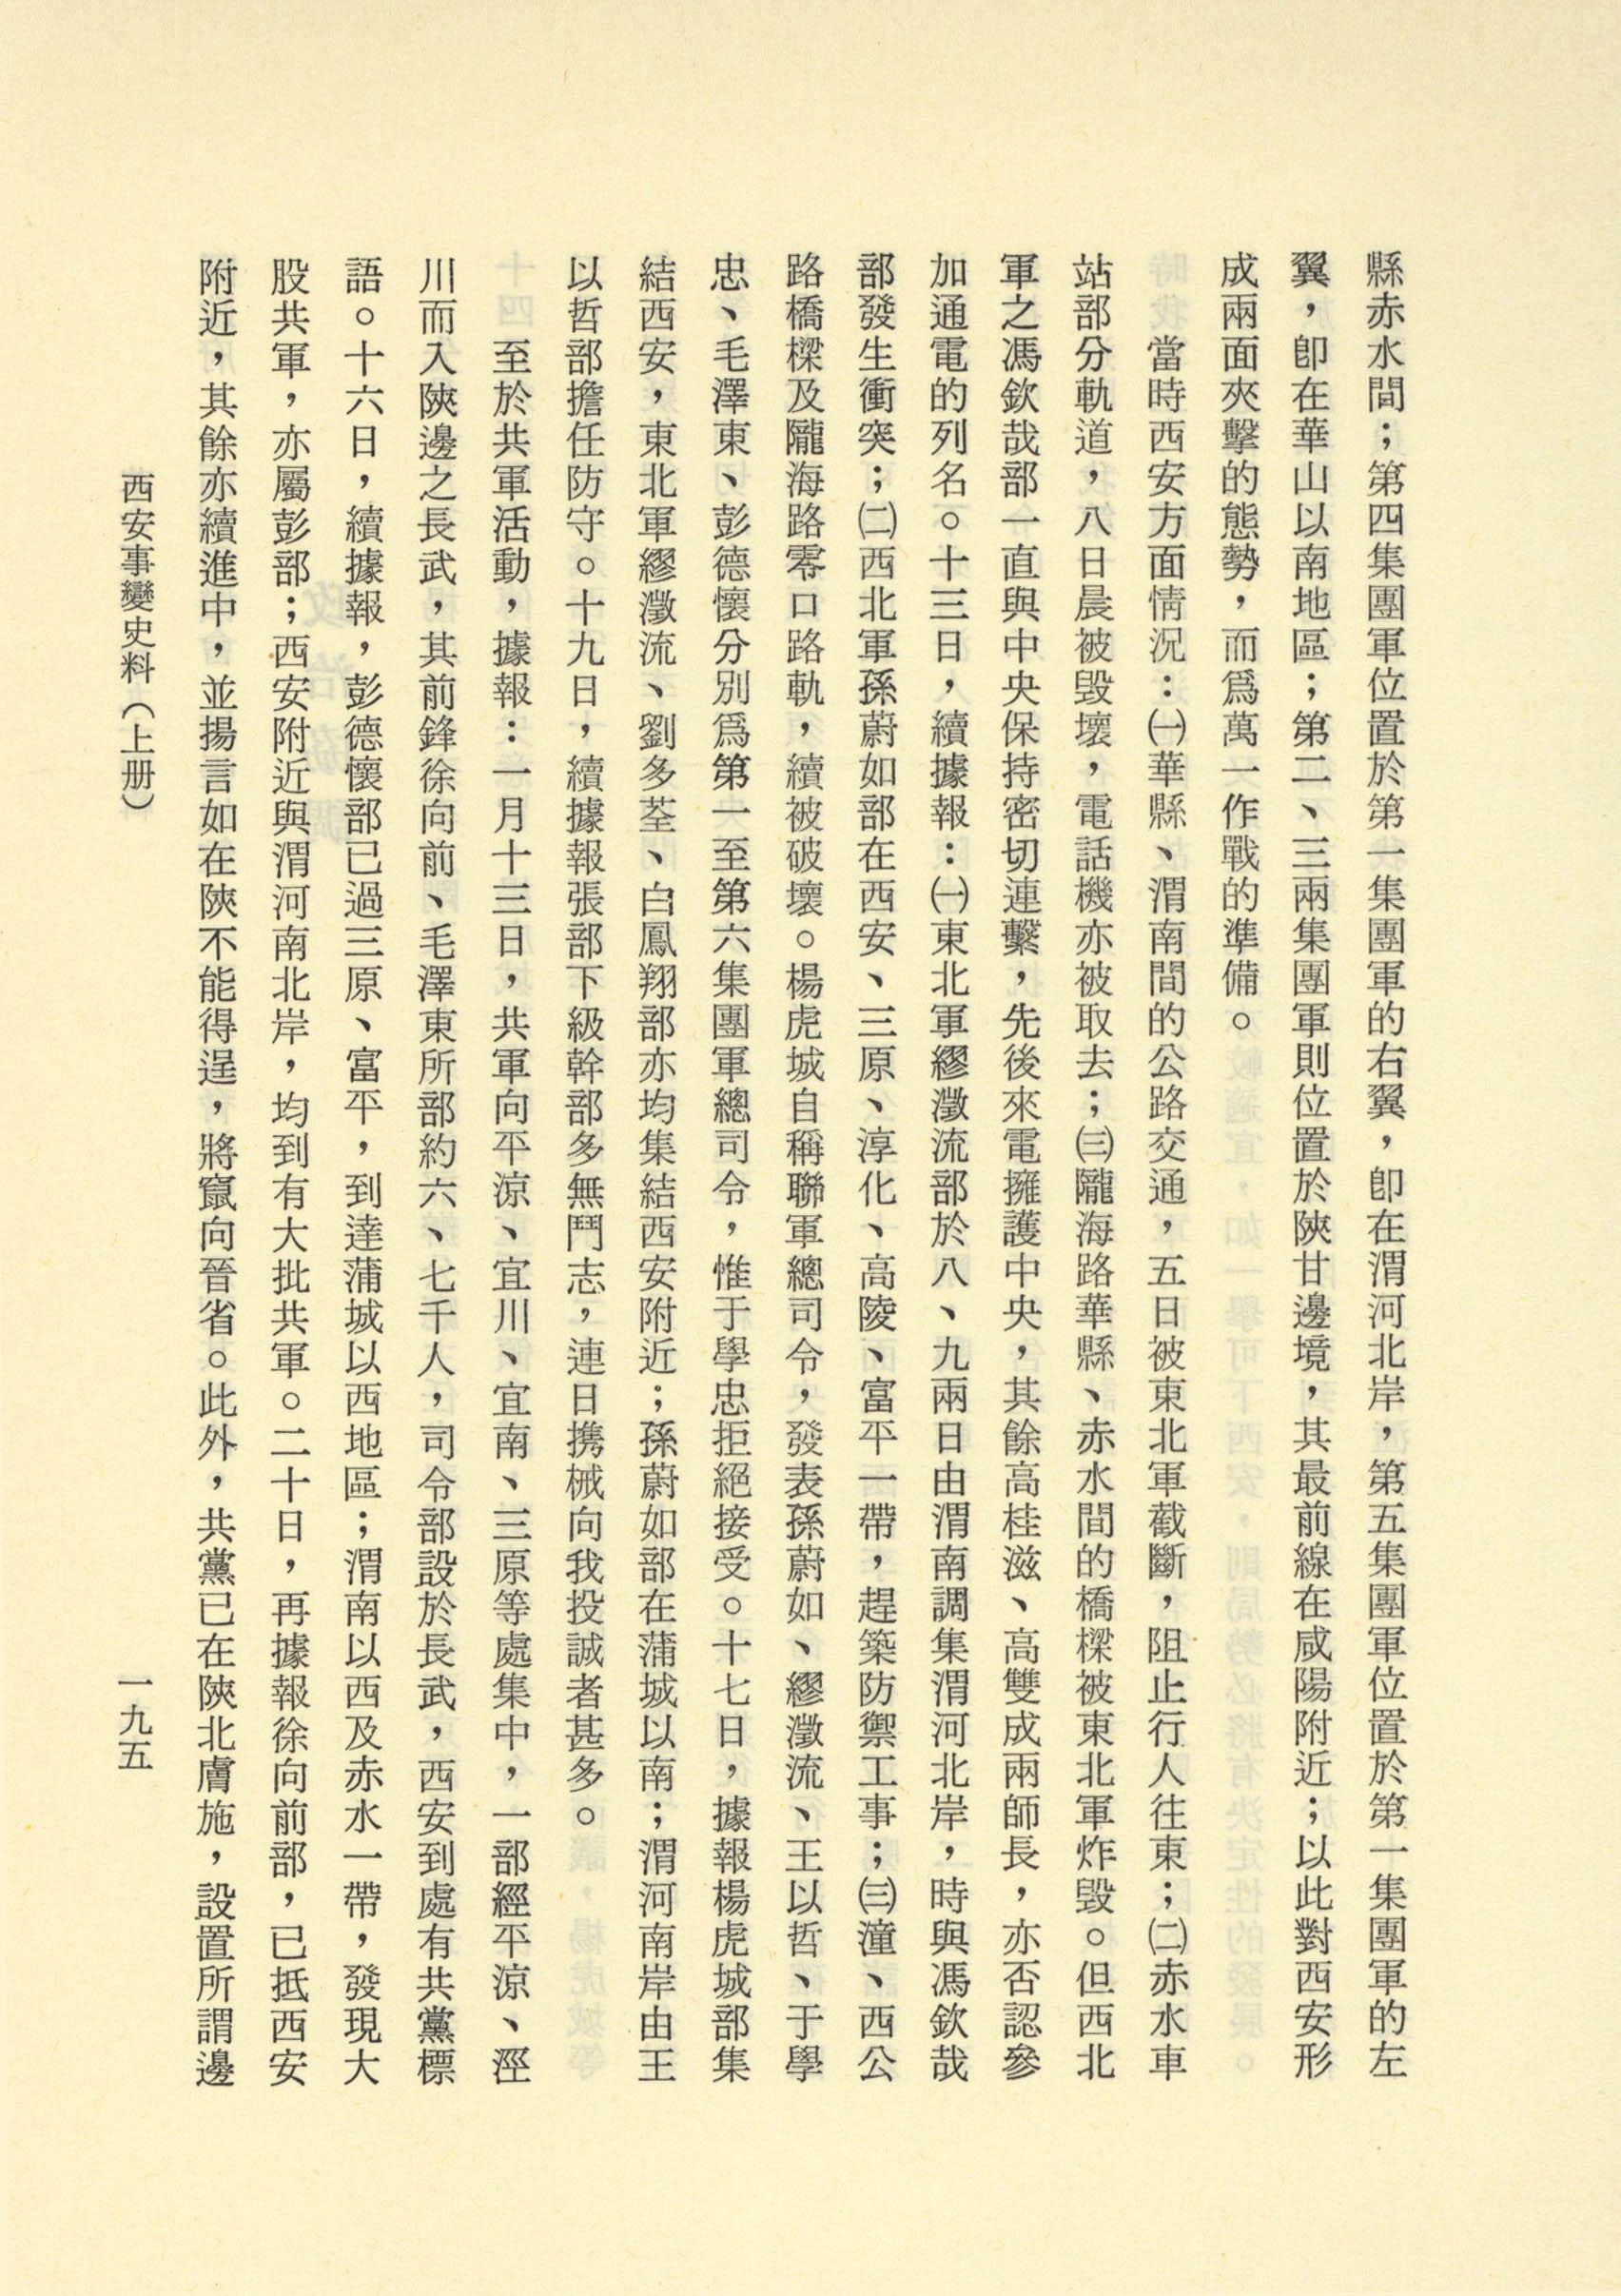 縣赤水間；第四集團軍位置於第一集團軍的右翼，卽在渭河北岸，第五集團軍位置於第一集團軍的左
翼，卽在華山以南地區；第二、三兩集團軍則位置於陝甘邊境，其最前線在咸陽附近；以此對西安形
成兩面夾擊的態勢，而爲萬一作戰的準備。
當時西安方面情況：㈠華縣、渭南間的公路交通，五日被東北軍截斷，阻止行人往東；㈡赤水車
站部分軌道，八日晨被毀壞，電話機亦被取去；㈢隴海路華縣、赤水間的橋樑被東北軍炸毀。但西北
軍之馮欽哉部一直與中央保持密切連繫，先後來電擁護中央，其餘高桂滋、高雙成兩師長，亦否認參
加通電的列名。十三日，續據報：㈠東北軍繆澂流部於八、九兩日由渭南調集渭河北岸，時與馮欽哉
部發生衝突；㈡西北軍孫蔚如部在西安、三原、淳化、高陵、富平一帶，趕築防禦工事；㈢潼、西公
路橋樑及隴海路零口路軌，續被破壞。楊虎城自稱聯軍總司令，發表孫蔚如、繆澂流、王以哲、于學
忠、毛澤東、彭德懷分別爲第一至第六集團軍總司令，惟于學忠拒絕接受。十七日，據報楊虎城部集
結西安，東北軍繆澂流、劉多荃、白鳳翔部亦均集結西安附近；孫蔚如部在蒲城以南；渭河南岸由王
以哲部擔任防守。十九日，續據報張部下級幹部多無鬥志，連日携械向我投誠者甚多。
至於共軍活動，據報：一月十三日，共軍向平涼、宜川、宜南、三原等處集中，一部經平涼、涇
川而入陝邊之長武，其前鋒徐向前、毛澤東所部約六、七千人，司令部設於長武，西安到處有共黨標
語。十六日，續據報，彭德懷部已過三原、富平，到達蒲城以西地區；渭南以西及赤水一帶，發現大
股共軍，亦屬彭部；西安附近與渭河南北岸，均到有大批共軍。二十日，再據報徐向前部，已抵西安
附近，其餘亦續進中，並揚言如在陝不能得逞，將竄向晉省。此外，共黨已在陝北膚施，設置所謂邊
西安事變史料（上册）
一九五